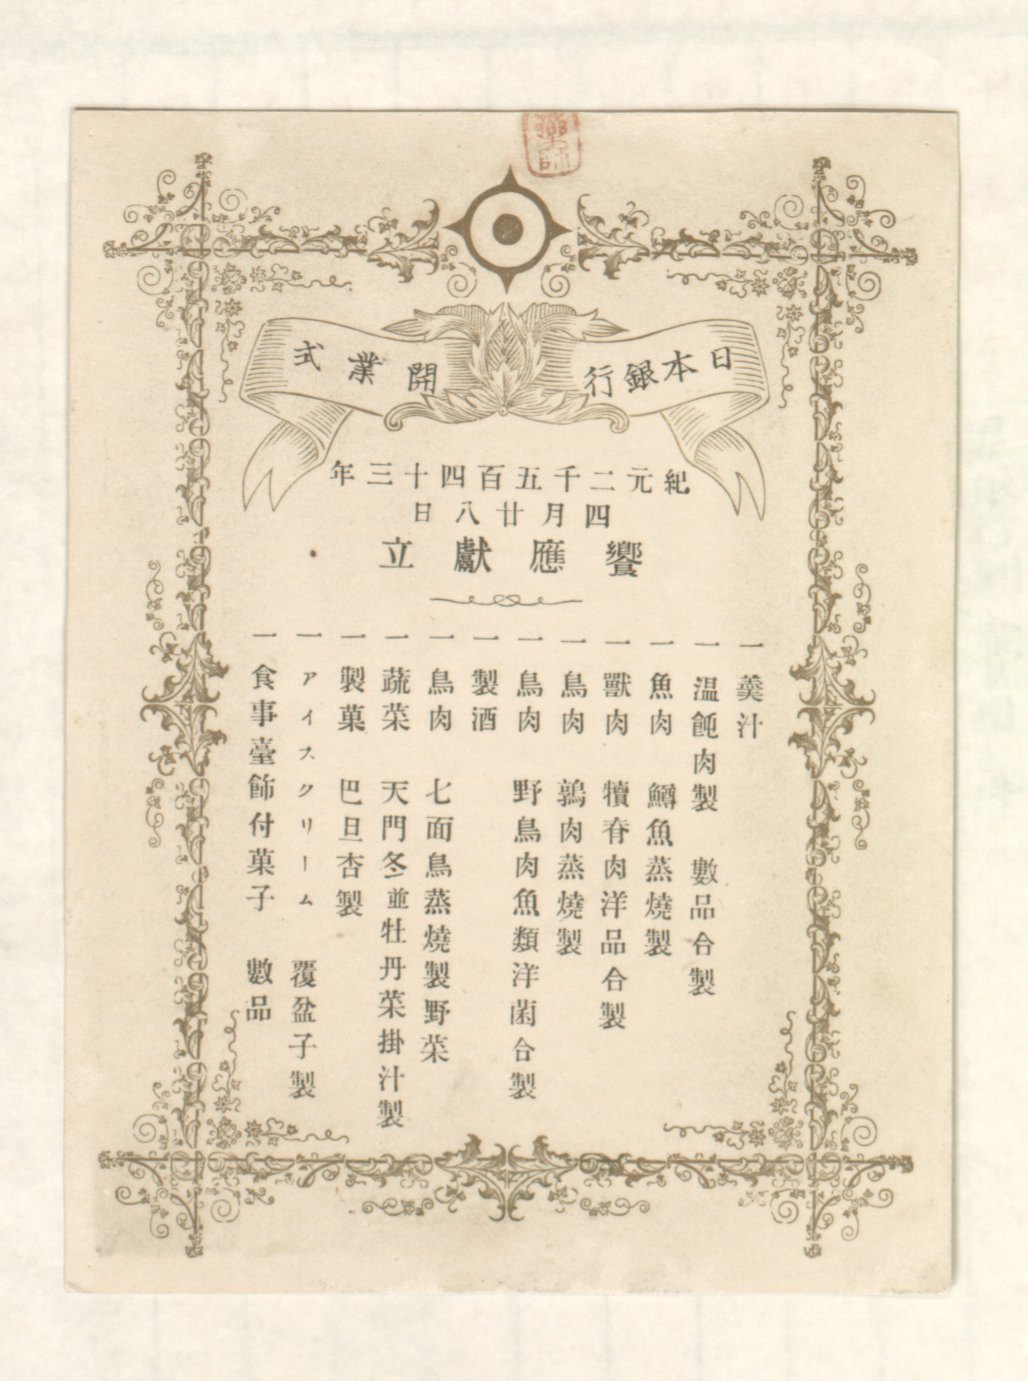 樂師
日本銀行 開業式
紀元二千五百四十三年
四月廿八日
饗應獻立
一 羹汁
一 温飩肉製 數品合製
一 魚肉 鱒魚蒸燒製
一 獸肉 犢脊肉洋品合製
一 鳥肉 鶉肉蒸燒製
一 鳥肉 野鳥肉魚類洋菌合製
一 製酒
一 鳥肉 七面鳥蒸燒製野菜
一 蔬菜 天門冬並牡丹菜掛汁製
一 製菓 巴旦杏製
一 アイスクリーム 覆盆子製
一 食事臺飾付菓子 數品